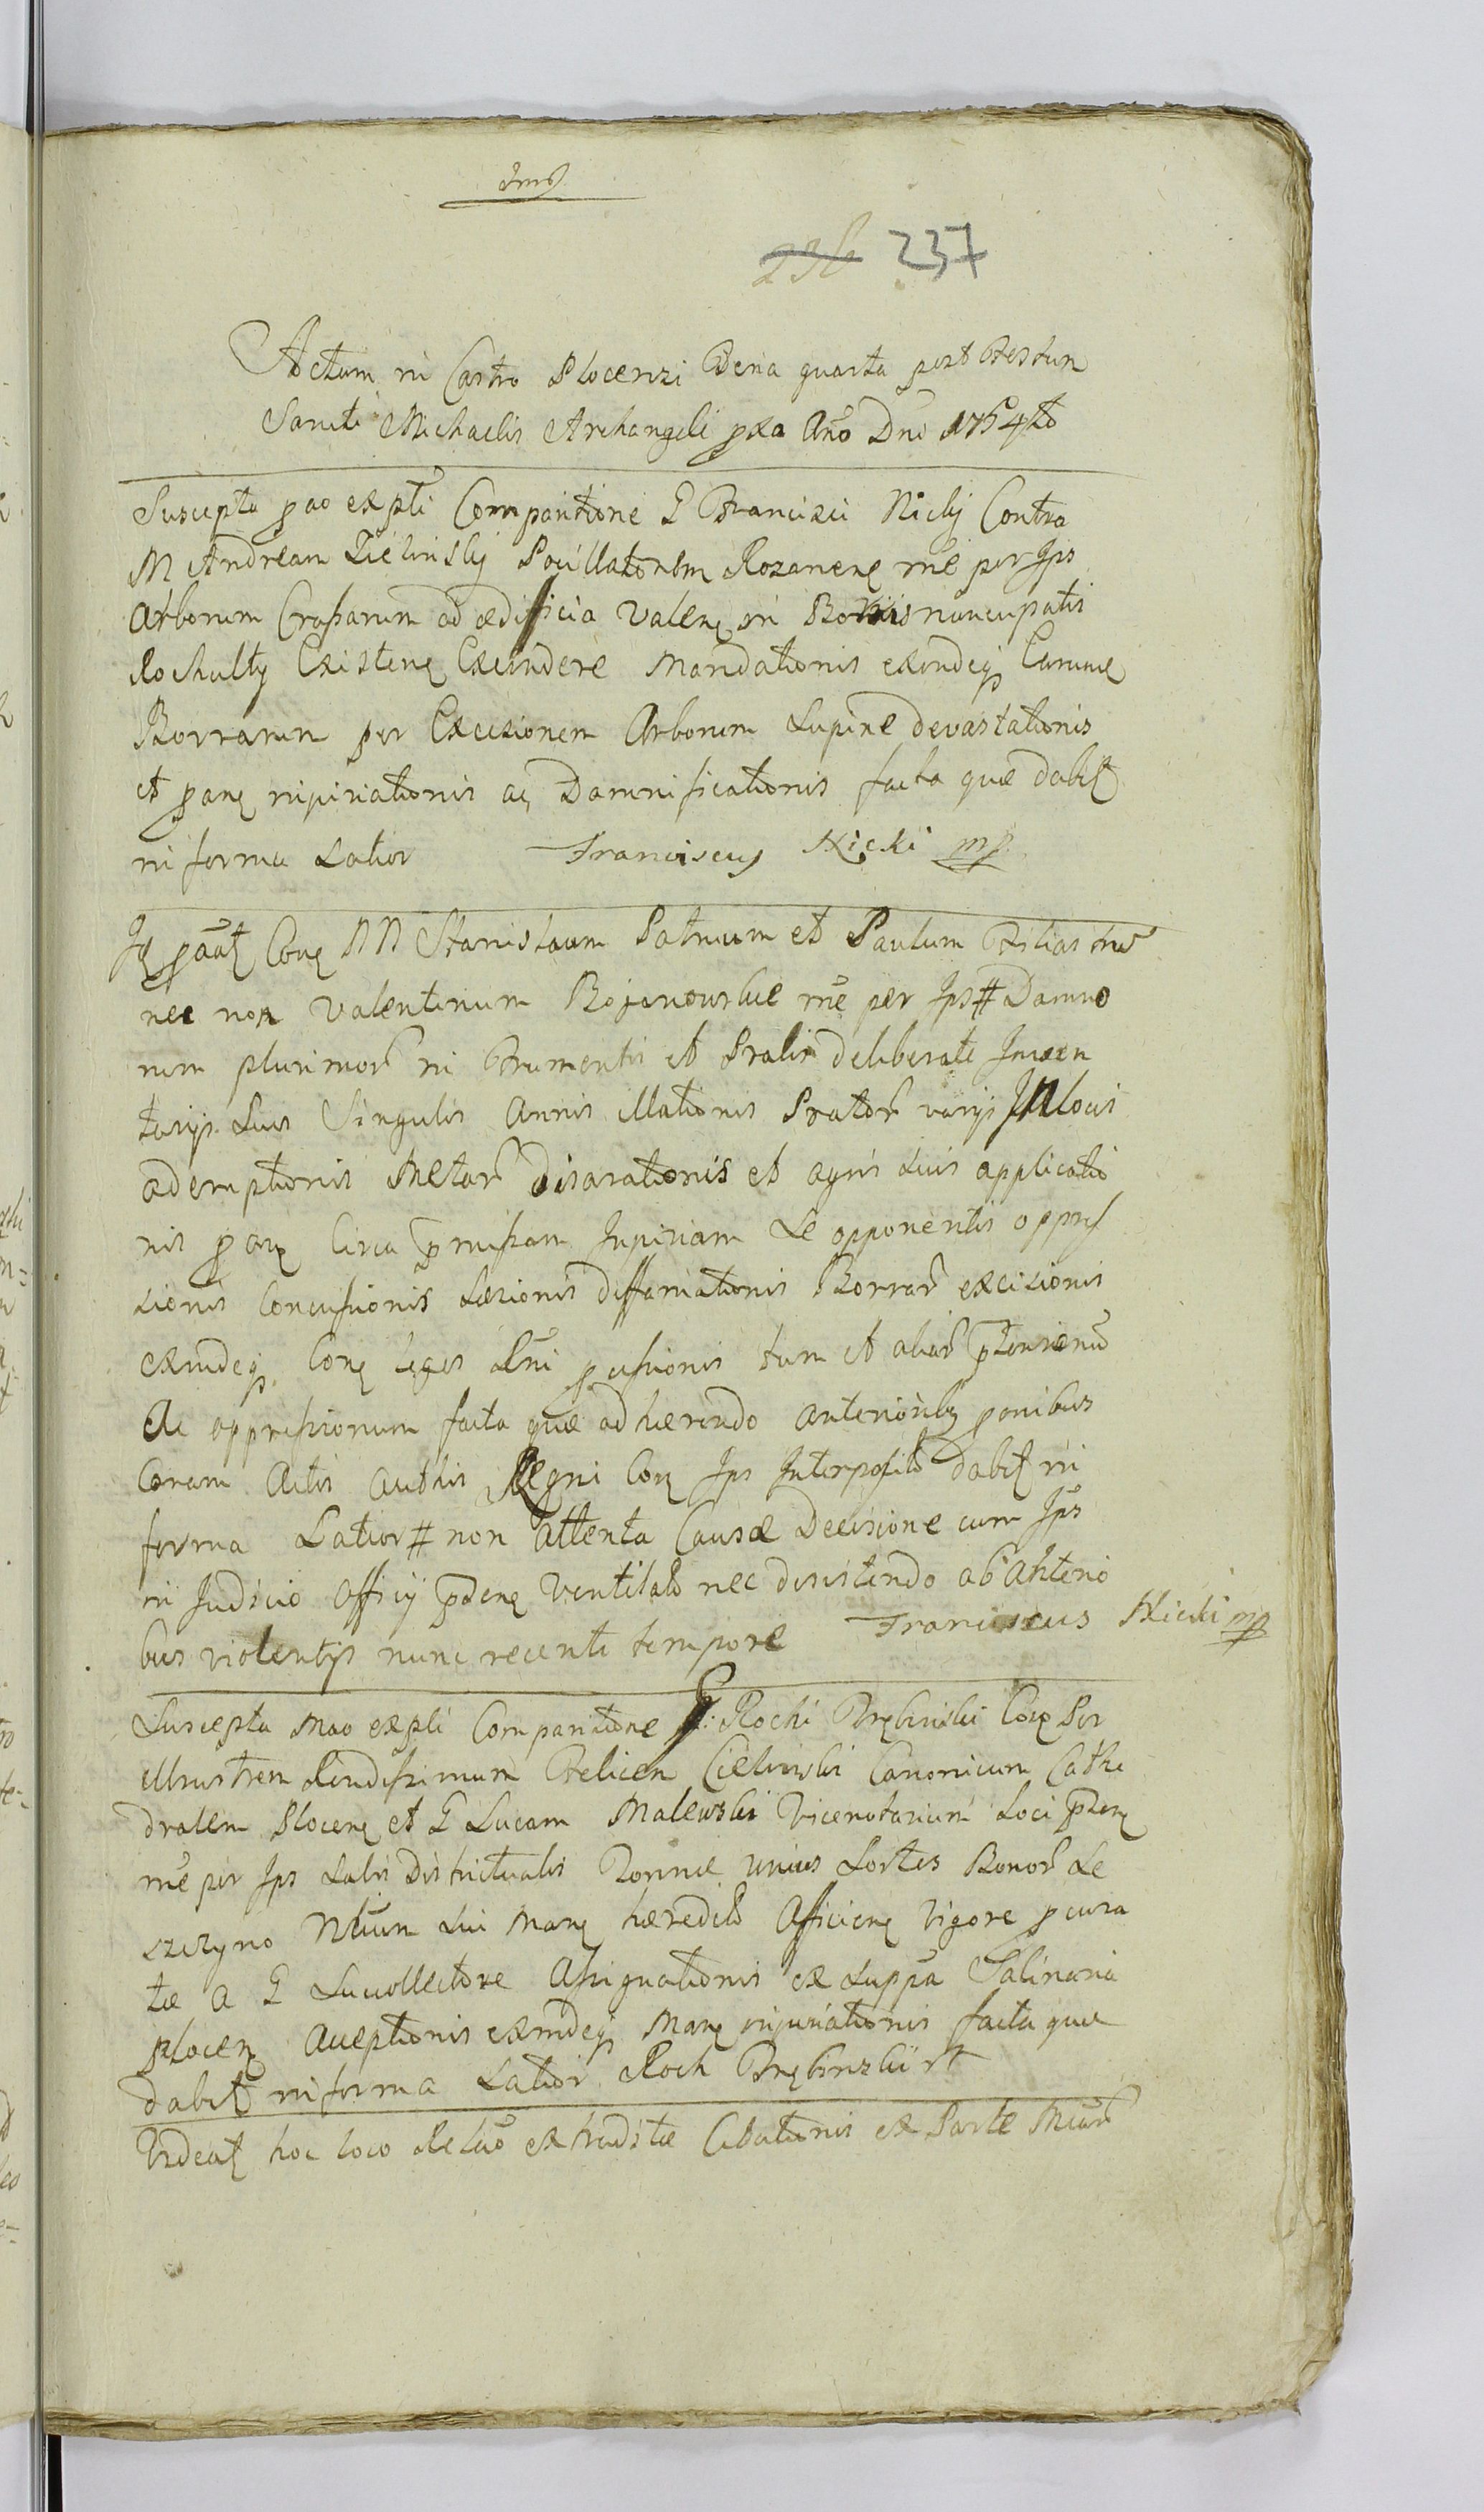 237
Actum in Castro Plocensi Feria quarta post Festum
Sancti Michaelis Archangeli pxa Ano Dni 1754to
Suscepta pao expti Comparitione G Francisci Nicky Contra
M Andream Zielinsky Pocillatorem Rozanens me per Ips
Arborum Crassarum ad ædificia valens in Borris nuncupatis
Rochulty Existens Excindere Mandationis exindeq
Borrarum per Excisionem Arborum Supine devastationis
et pans injuriationis ac Damnificationis facta quæ dabit
in forma Latior Franciscus Nicki mp
Iq paat Cons MM Stanislaum Patruum et Paulum
nec non Valentinum Bojanowskie me per Ips # Damno
rum plurimor in Frumentis et Pratis deliberate Inven
tarijs Suis Singulis Annis illationis Prator varijs In locis
ademptionis Metar disarationis et agris suis applicatio
nis pans Circa pmissam Injuriam Se opponentis oppres
sionis Concussionis Læsionis diffamationis Borrar excisionis
exindeq Cons leges Rni pcussionis tum et aliar ptensionu
Ac oppressionum facta quæ adhærendo anterioribq ponibus
Coram Actis Authis Regni Cons Ips Interposito dabit in
forma Latior # non attenta Causæ Decisione cum Ips
in Judicio Officij pdens Ventilato nec desistendo ab Anterio
bus violentijs nunc recenti tempore Franciscus Nicki mp
Suscepta mao expti Comparitione G: Rochi Cons Per
illustrem Rendissimum Felicem Cielinski Canonicum Cathe
dralem Plocens et G Lucam Malewski Vicenotarium Loci pdens
me per Ips Salis Districtualis Tonnæ unius Sortes Bonor Se
czeszyno Ntium sui Mans hæredeto Afficiens Vigore pcura
tæ a G Succollectore Assignationis ex Suppa Salinaria
Plocens Acceptionis exindeq Mans injuriationis facta quæ
dabit in forma Latior Roch
Videat hoc loco Relao extraditæ Citationis ex Parte